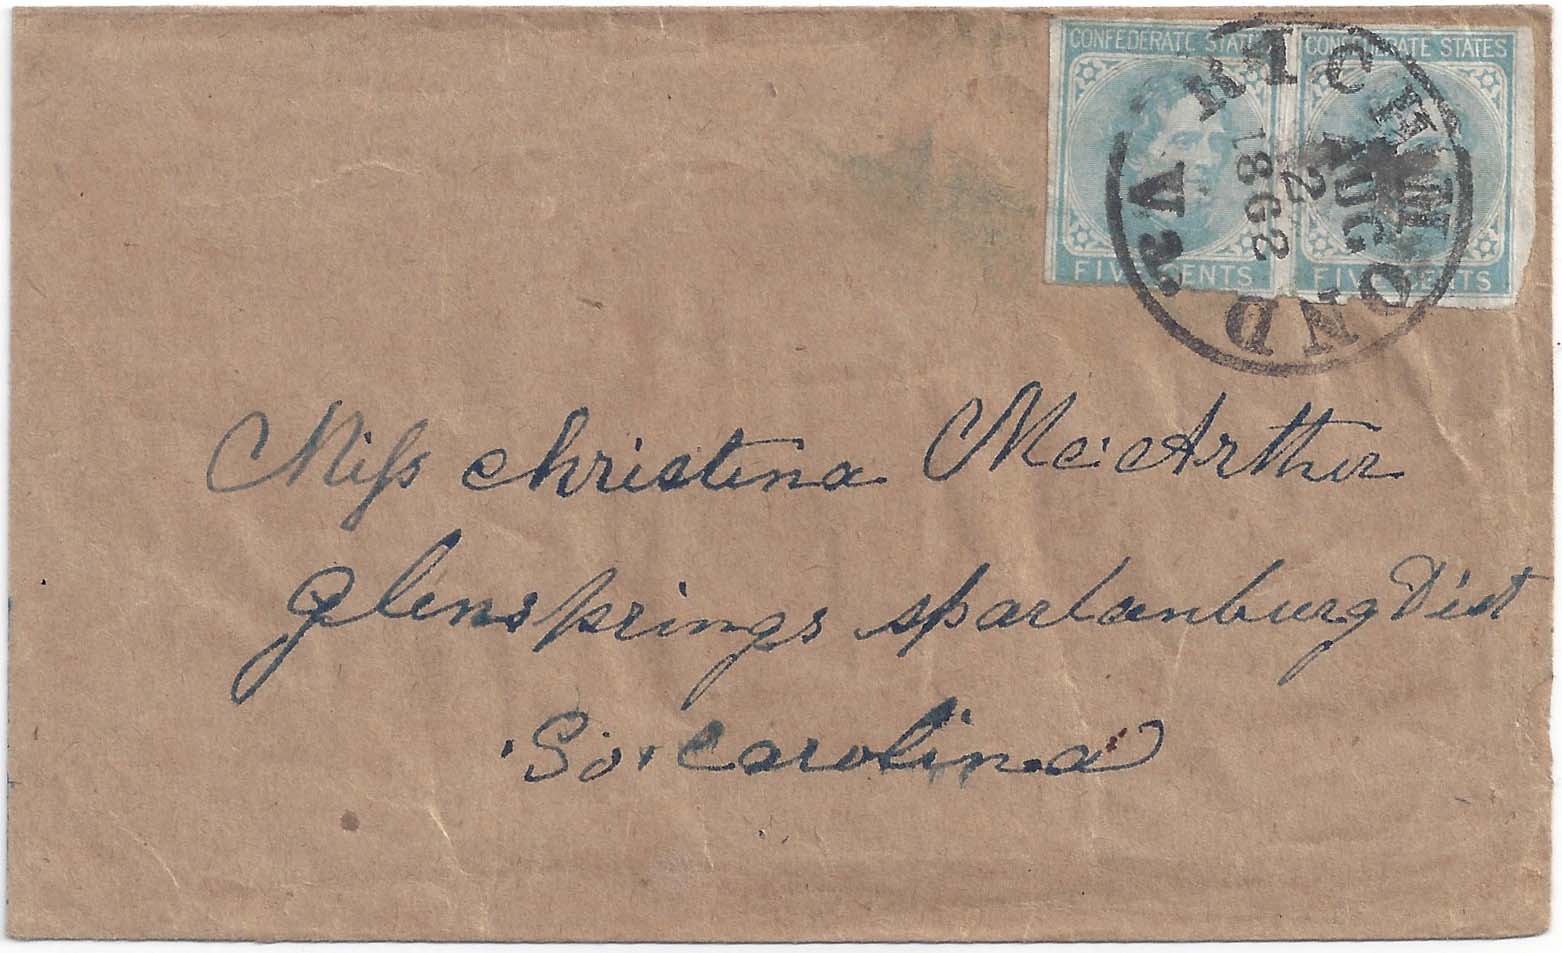 CONFEDERATE STATES CONFEDERATE STATES
FIVE CENTS FIVE CENTS
RICHMOND VA.
AUG
2
1862
Miss Christina Mc.Arther
Glensprings Spartanburg Dist
So. Carolina